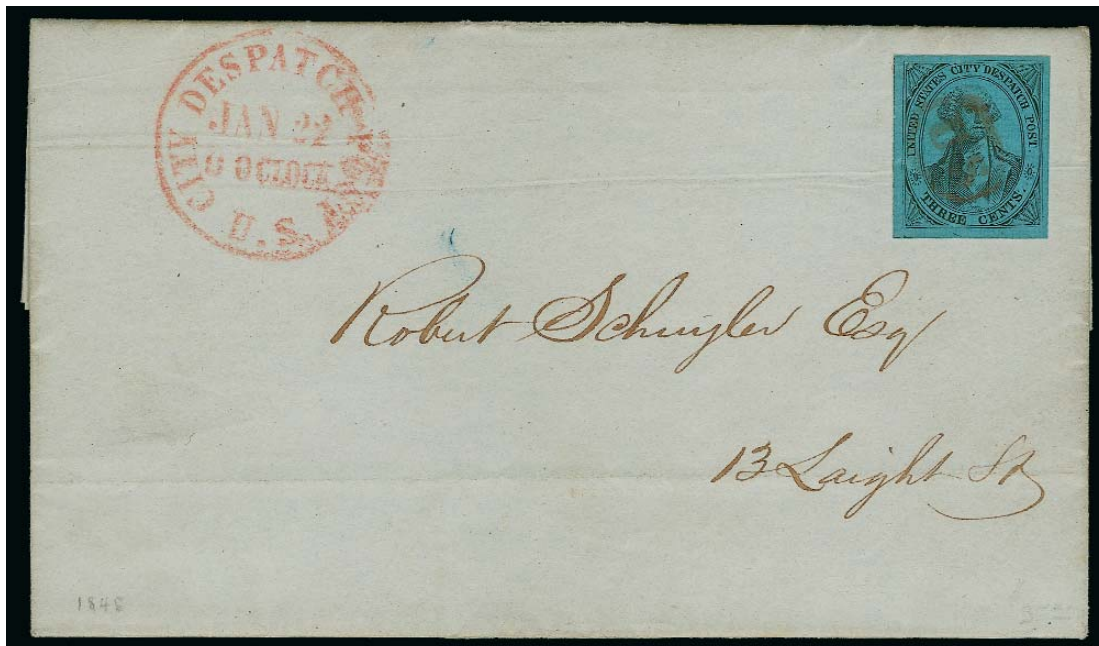 U.S. CITY DESPATCH
JAN 22
O'CLOCK
UNITED STATES CITY DESPATCH POST.
THREE CENTS.
Robert Schuyler Esq
13 Laight St